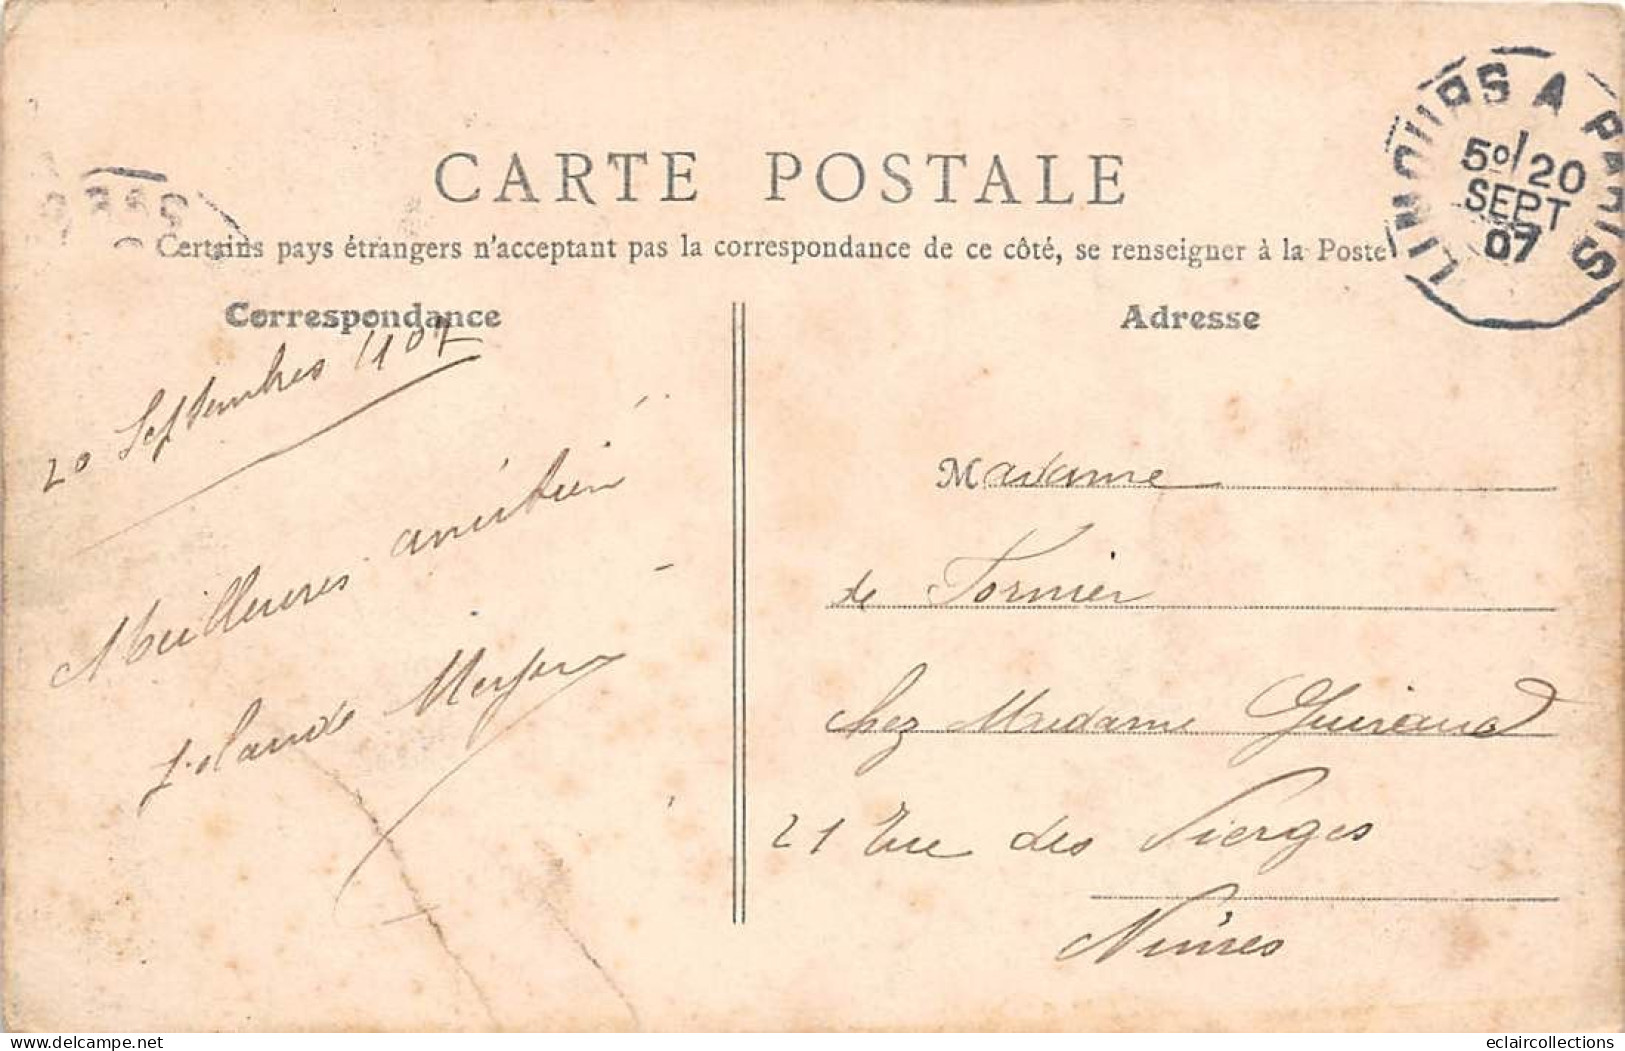 CARTE POSTALE
Certains pays étrangers n'acceptant pas la correspondance de ce côté, se renseigner à la Poste
LIMOURS A PARIS
5º/20
SEPT
07
Correspondance
20 Septembres 1907
Meilleures amitiés
Yolande
Adresse
Madame
de Fornier
chez Madame Guiraud
21 Rue des Vierges
Nîmes
eclaircollections